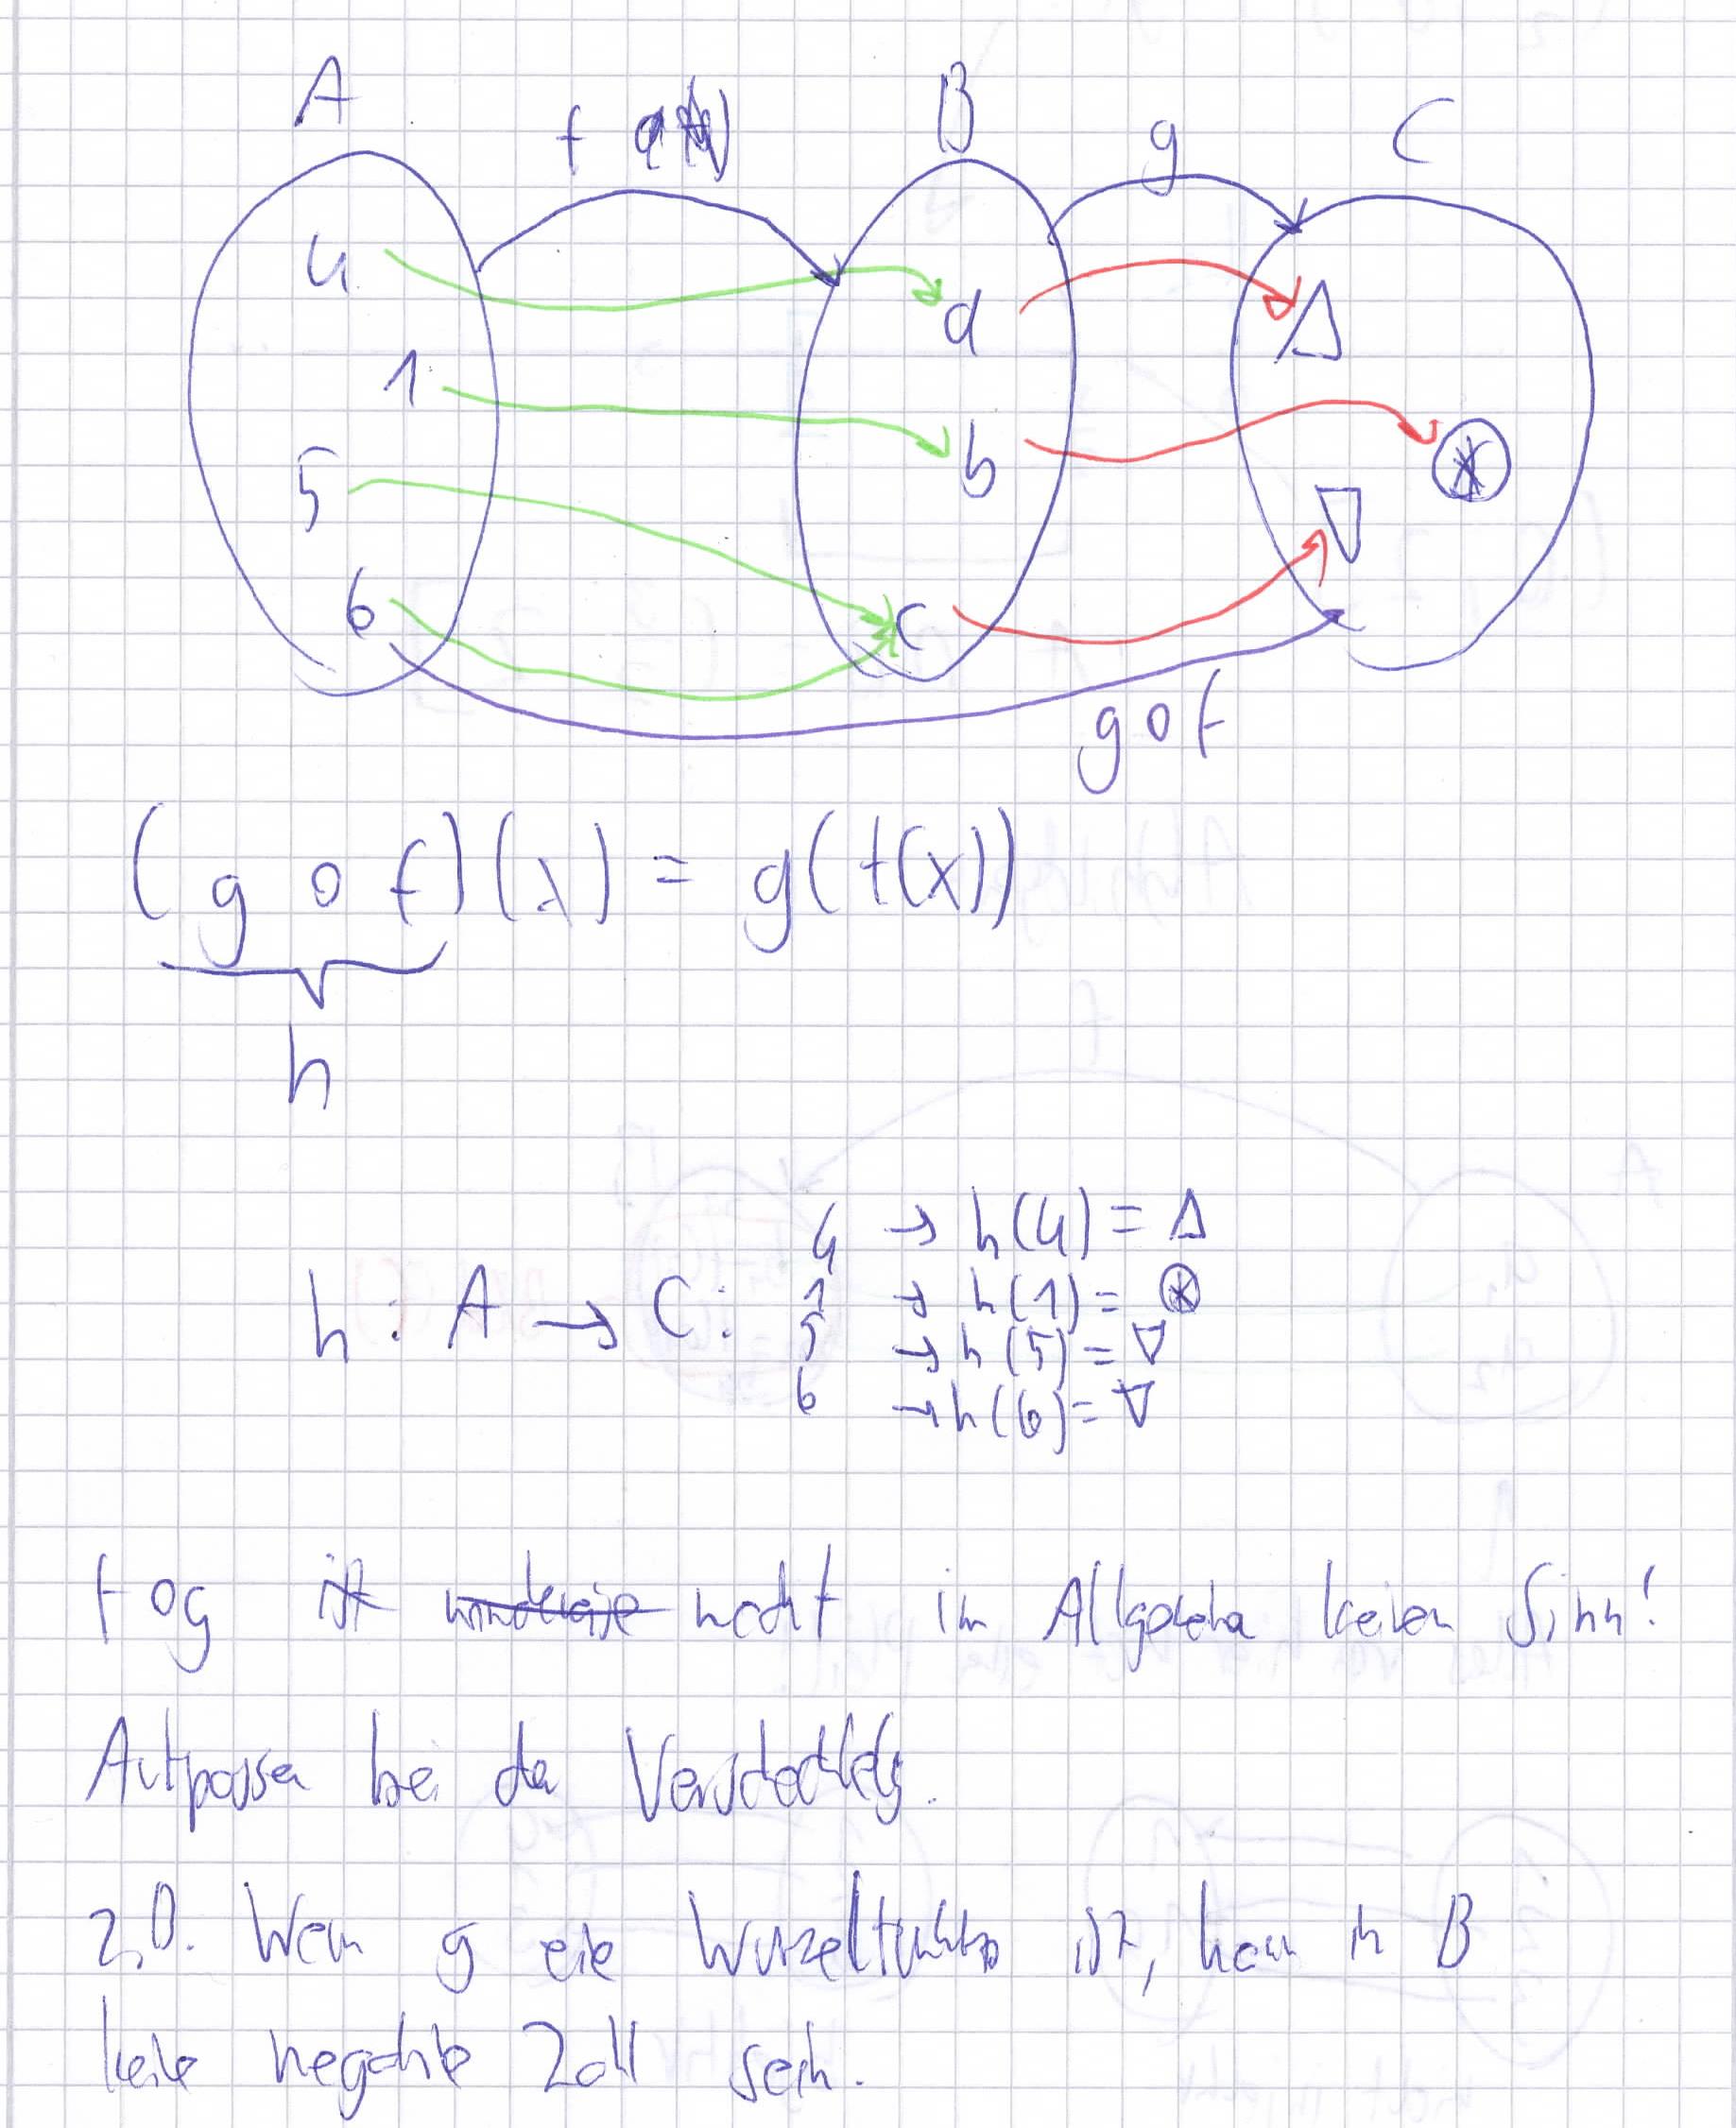 A f B g C
4 a △
1 b ⊛
5 ▽
6 c
g o f
(g o f)(x) = g(f(x))
h
4 → h(4) = △
h : A → C : 1 → h(1) = ⊛
5 → h(5) = ▽
6 → h(6) = ▽
f o g ist macht im Allgemeinen keinen Sinn!
Aufpassen bei der Verkettung.
z.B. Wenn g eine Wurzelfunktion ist, kann in B
keine negative Zahl sein.